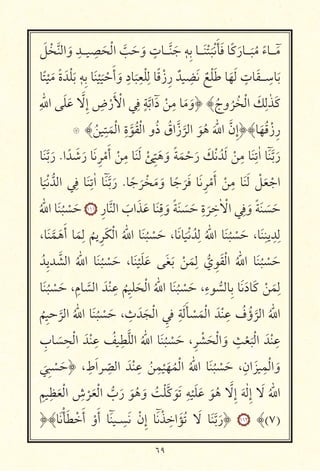 مَآءً مُّبَارَكًا فَأَنۢبَتْنَا بِهِۦ جَنَّاتٍ وَحَبَّ الْحَصِيدِ وَالنَّخْلَ
بَاسِقَاتٍ لَهَا طَلْعٌ نَضِيدٌ رِزْقًا لِلْعِبَادِ وَأَحْيَيْنَا بِهِ بَلْدَةً مَيْتًا
كَذٰلِكَ الْخُرُوجُ﴾ ﴿وَمَا مِنْ دَآبَّةٍ فِي الْأَرْضِ إِلَّا عَلَى اللهِ
رِزْقُهَا﴾ ﴿إِنَّ اللهَ هُوَ الرَّزَّاقُ ذُو الْقُوَّةِ الْمَتِينُ﴾ ۞
رَبَّنَا آتِنَا مِنْ لَدُنْكَ رَحْمَةً وَهَيِّئْ لَنَا مِنْ أَمْرِنَا رَشَدًا. رَبَّنَا
اجْعَلْ لَنَا مِنْ أَمْرِنَا فَرَجًا وَمَخْرَجًا. رَبَّنَا آتِنَا فِي الدُّنْيَا
حَسَنَةً وَفِي الْآخِرَةِ حَسَنَةً وَقِنَا عَذَابَ النَّارِ ﴿١١٦﴾ حَسْبُنَا اللهُ
لِدِينِنَا، حَسْبُنَا اللهُ لِدُنْيَانَا، حَسْبُنَا اللهُ الْكَرِيمُ لِمَا أَهَمَّنَا،
حَسْبُنَا اللهُ الْقَوِيُّ لِمَنْ بَغَى عَلَيْنَا، حَسْبُنَا اللهُ الشَّدِيدُ
لِمَنْ كَادَنَا بِالسُّوءِ، حَسْبُنَا اللهُ الْحَلِيمُ عِنْدَ السَّامِ، حَسْبُنَا
اللهُ الرَّؤُفُ عِنْدَ الْمَسْأَلَةِ فِي الْجَدَثِ، حَسْبُنَا اللهُ الرَّحِيمُ
عِنْدَ الْبَعْثِ وَالْحَشْرِ، حَسْبُنَا اللهُ اللَّطِيفُ عِنْدَ الْحِسَابِ
وَالْمِيزَانِ، حَسْبُنَا اللهُ الْمُهَيْمِنُ عِنْدَ الصِّرَاطِ، ﴿حَسْبِيَ
اللهُ لَا إِلٰهَ إِلَّا هُوَ عَلَيْهِ تَوَكَّلْتُ وَهُوَ رَبُّ الْعَرْشِ الْعَظِيمِ
(٧)﴾ ﴿١١٧﴾ ﴿رَبَّنَا لَا تُؤَاخِذْنَا إِنْ نَسِينَا أَوْ أَخْطَأْنَا﴾﴿
٦٩